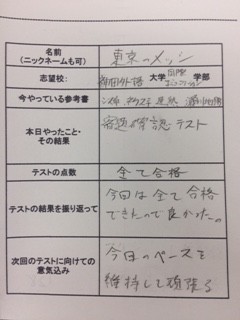 名前
(ニックネームも可)
東京のメッシ
志望校:
神田外語 大学 国際コミュニケーション 学部
今やっている参考書
本日やったこと・
その結果
宿題の確認テスト
テストの点数
全て合格
テストの結果を振り返って
今回は全て合格
できたので良かった。
次回のテストに向けての
意気込み
今日のペースを
維持して頑張る